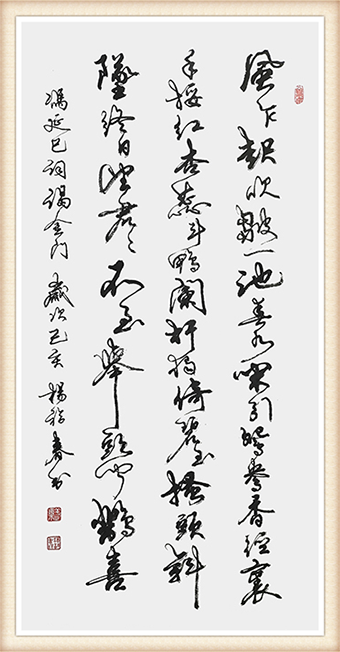 風乍起吹皺一池春水閑引鴛鴦香徑裏
手挼紅杏蕊斗鴨闌杆獨倚碧玉搔頭斜
墜終日望君々不至舉頭聞鵲喜
馮延巳詞謁金門 歲次己亥 楊春书